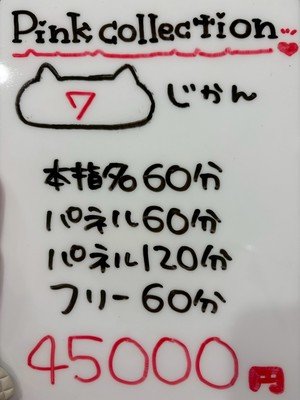 Pink collection
7 じかん
本指名60分
パネル60分
パネル120分
フリー60分
45000円